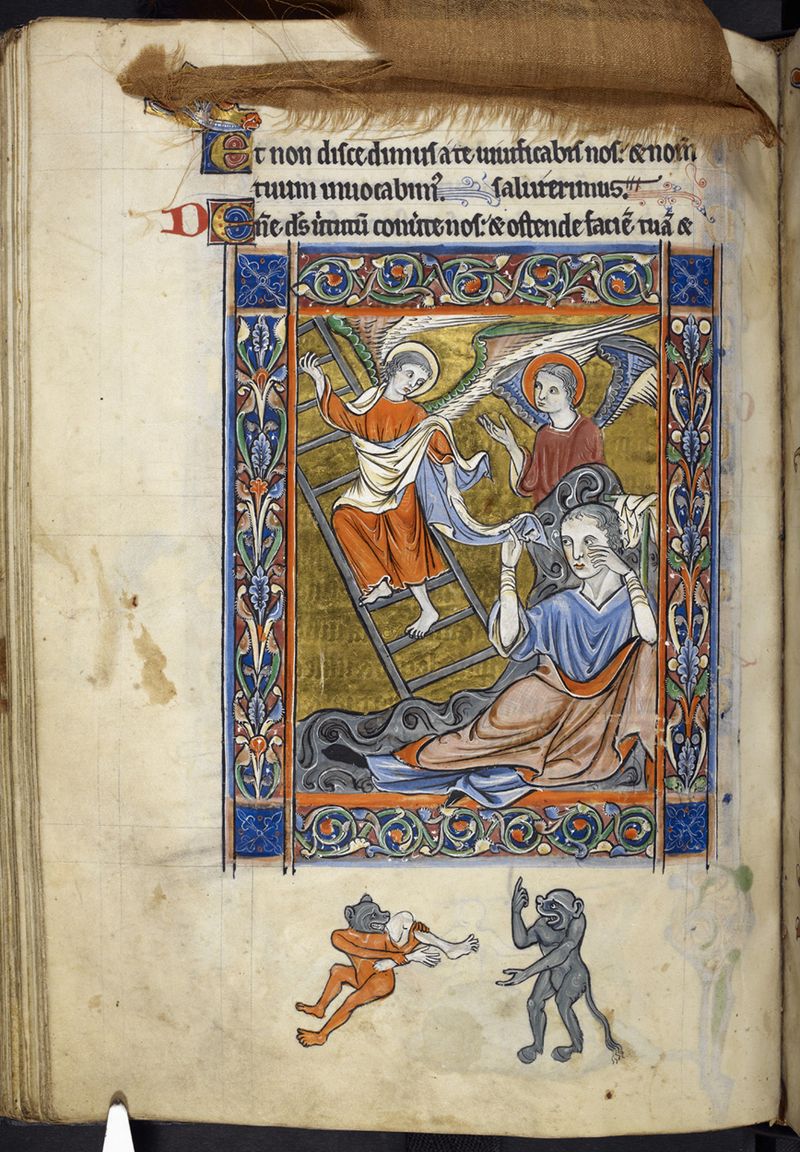 Et non discedimus a te uiuificabis nos: & nom̄
tuum inuocabim᷒. salui erimus.
D En̄e ds̄ uͥtutū conu͛te nos: & ostende faciē tuā &